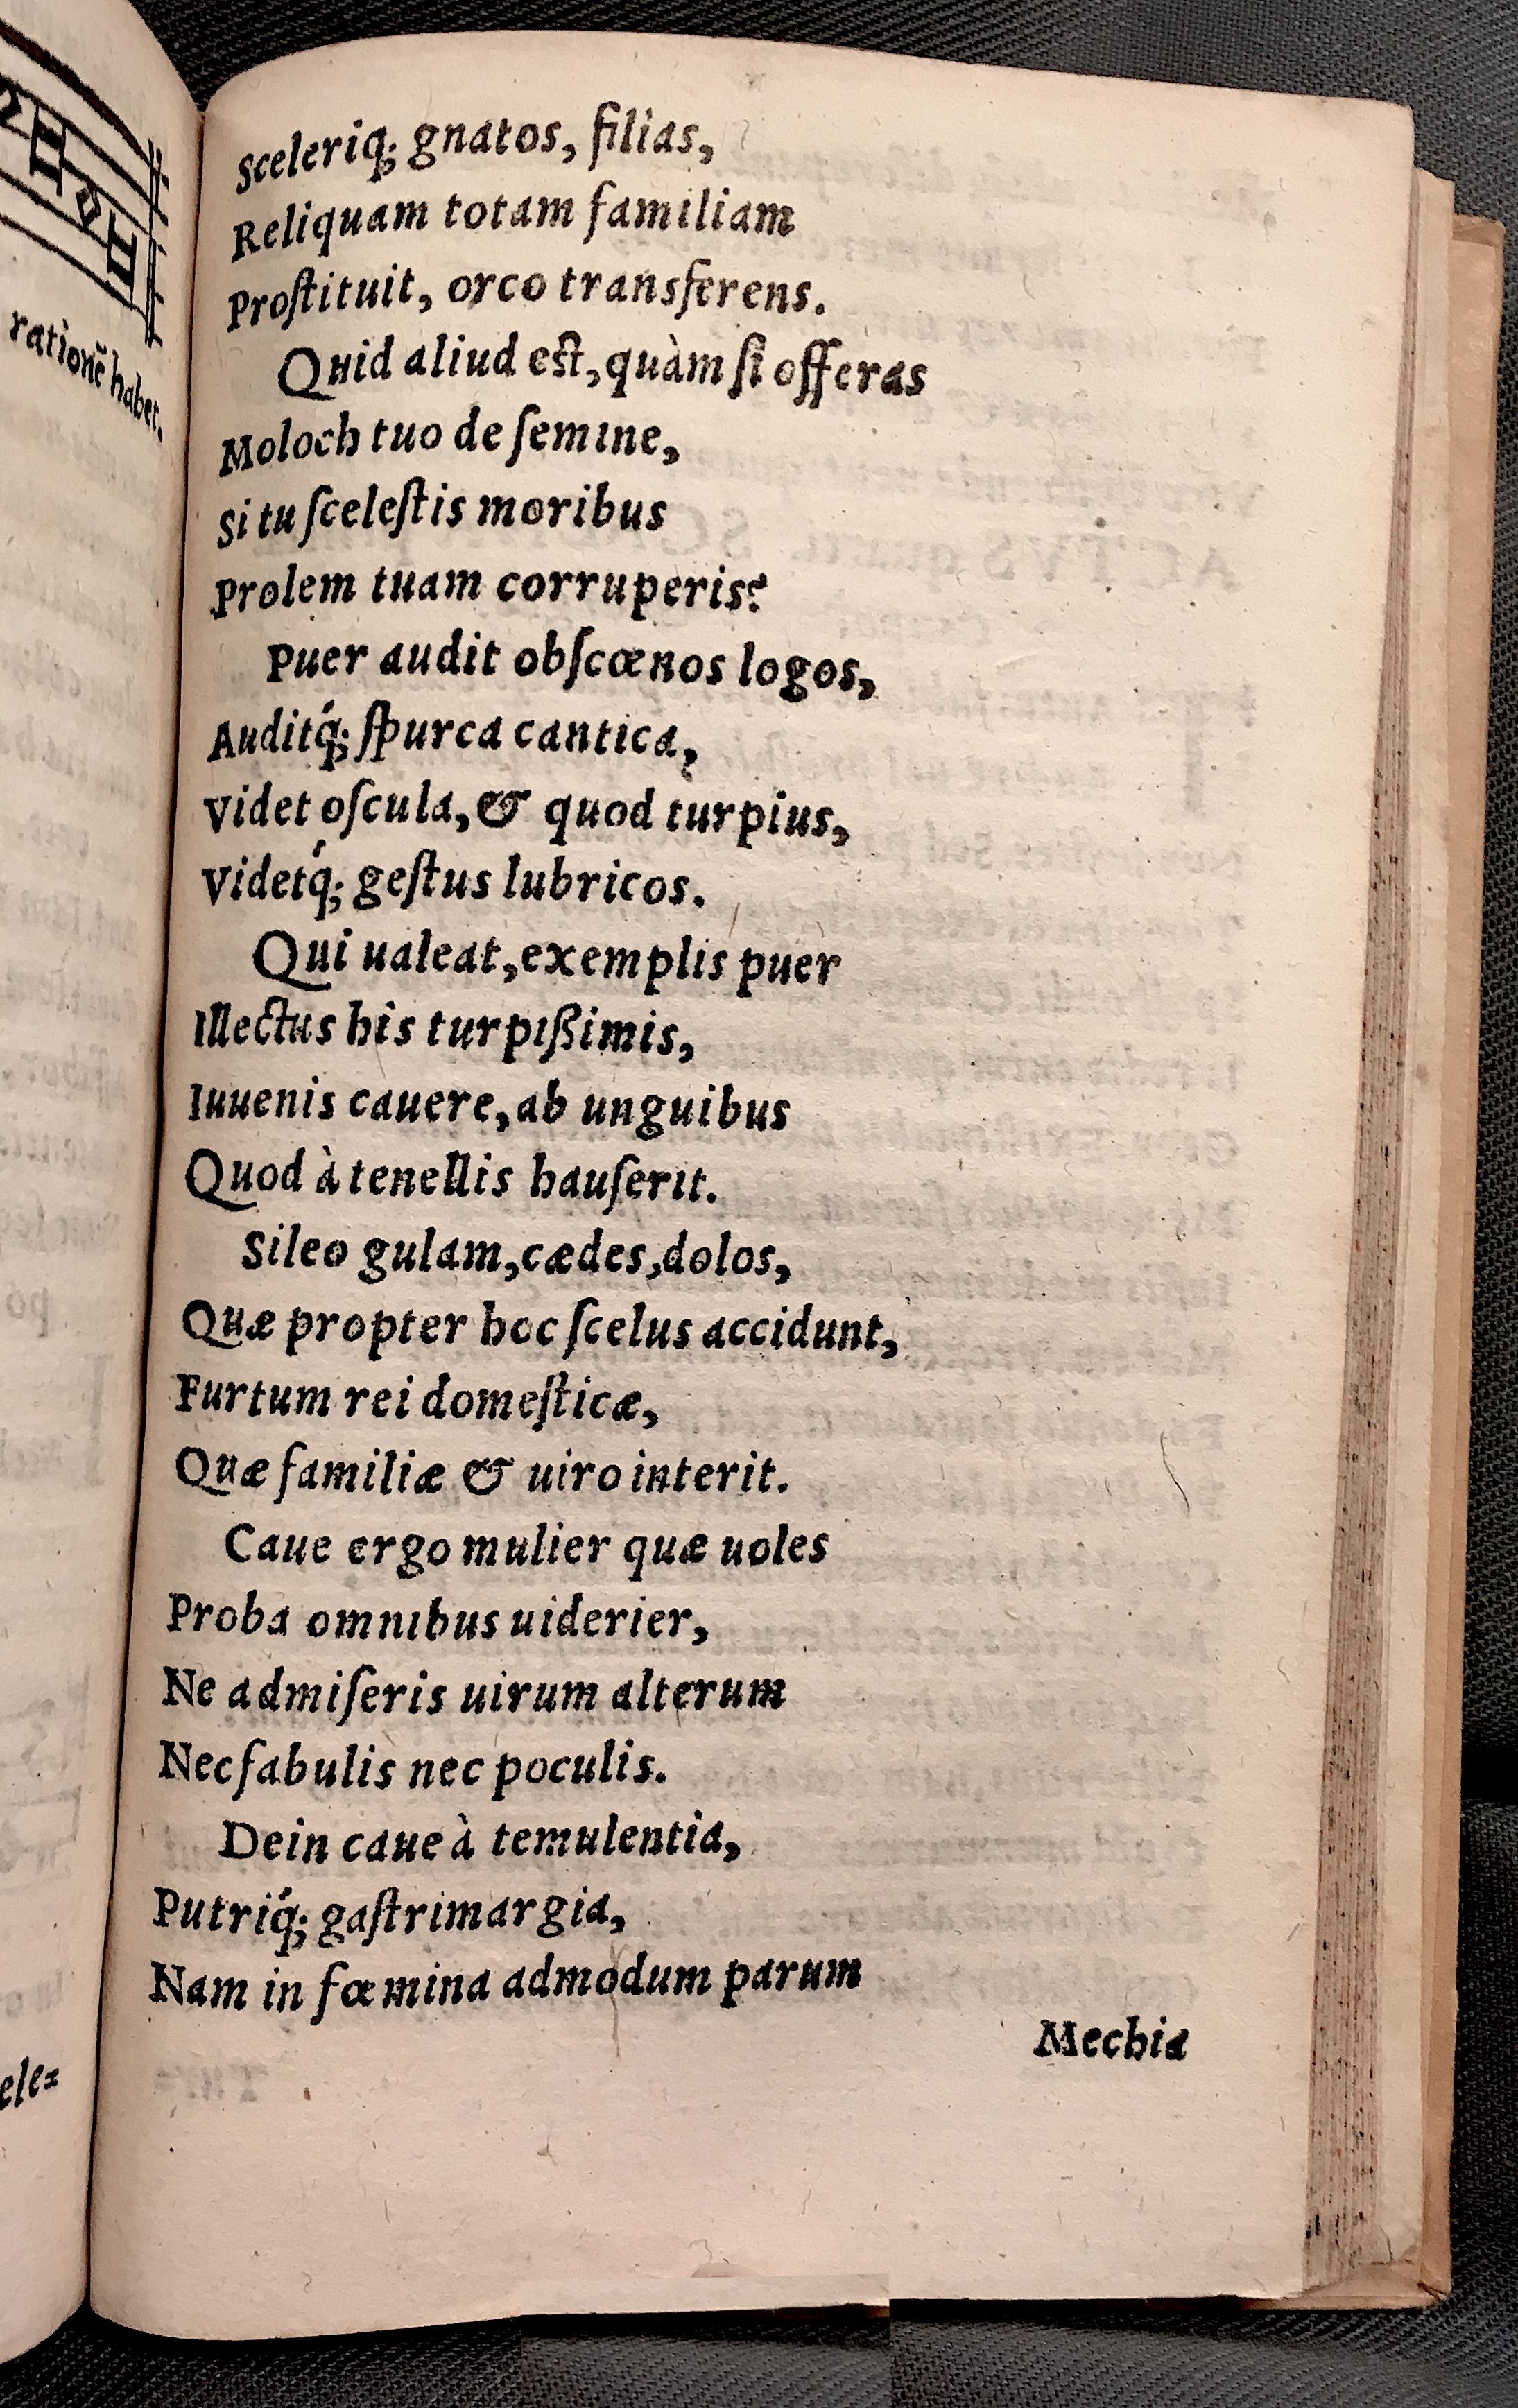 rationē habet.
ele=
Sceleriq́; gnatos, filias,
Reliquam totam familiam
Proſtituit, orco transferens.
Quid aliud eſt, quàm ſi offeras
Moloch tuo de ſemine,
Si tu ſceleſtis moribus
Prolem tuam corruperis?
Puer audit obſcœnos logos,
Auditq́; ſpurca cantica,
Videt oſcula, & quod turpius,
Videtq́; geſtus lubricos.
Qui ualeat, exemplis puer
Illectus his turpißimis,
Iuuenis cauere, ab unguibus
Quod à tenellis hauſerit.
Sileo gulam, cædes, dolos,
Quæ propter hoc ſcelus accidunt,
Furtum rei domeſticæ,
Quæ familiæ & uiro interit.
Caue ergo mulier quæ uoles
Proba omnibus uiderier,
Ne admiſeris uirum alterum
Nec fabulis nec poculis.
Dein caue à temulentia,
Putriq́; gaſtrimargia,
Nam in fœmina admodum parum
Mechia